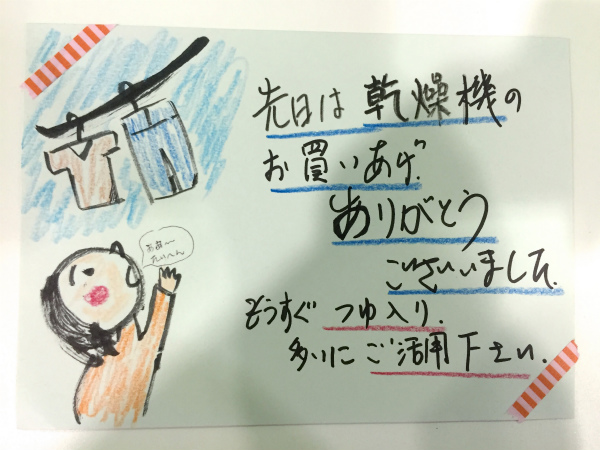 先日は乾燥機の
お買いあげ
ありがとう
ございました。
そうすぐつゆ入り。
多いにご活用下さい。
ああ〜
たいへん